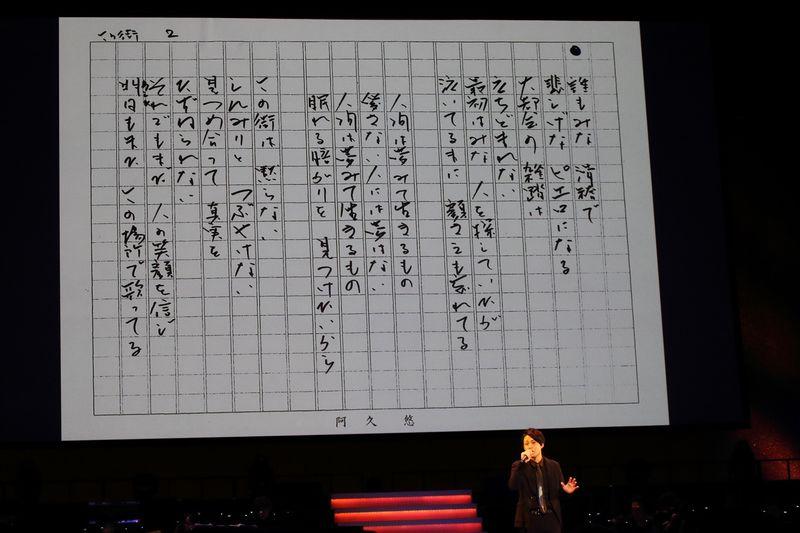 この街 2
誰もみな 滑稽で
悲しげな ピエロになる
大都会の 雑踏は
立ちどまれない
最初はみな 人を探していながら
泣いてるまに 顔さえも忘れてる
人間は夢みて生きるもの
愛さない人には夢はない
人間は夢みて生きるもの
眠れる暗がりを 見つけたいから
この街は 黙らない
しんみりと つぶやけない
見つめ合って 真実を
たずねられない
それでもまた 人の笑顔を信じ
明日もまた この場所で歌ってる
阿久悠